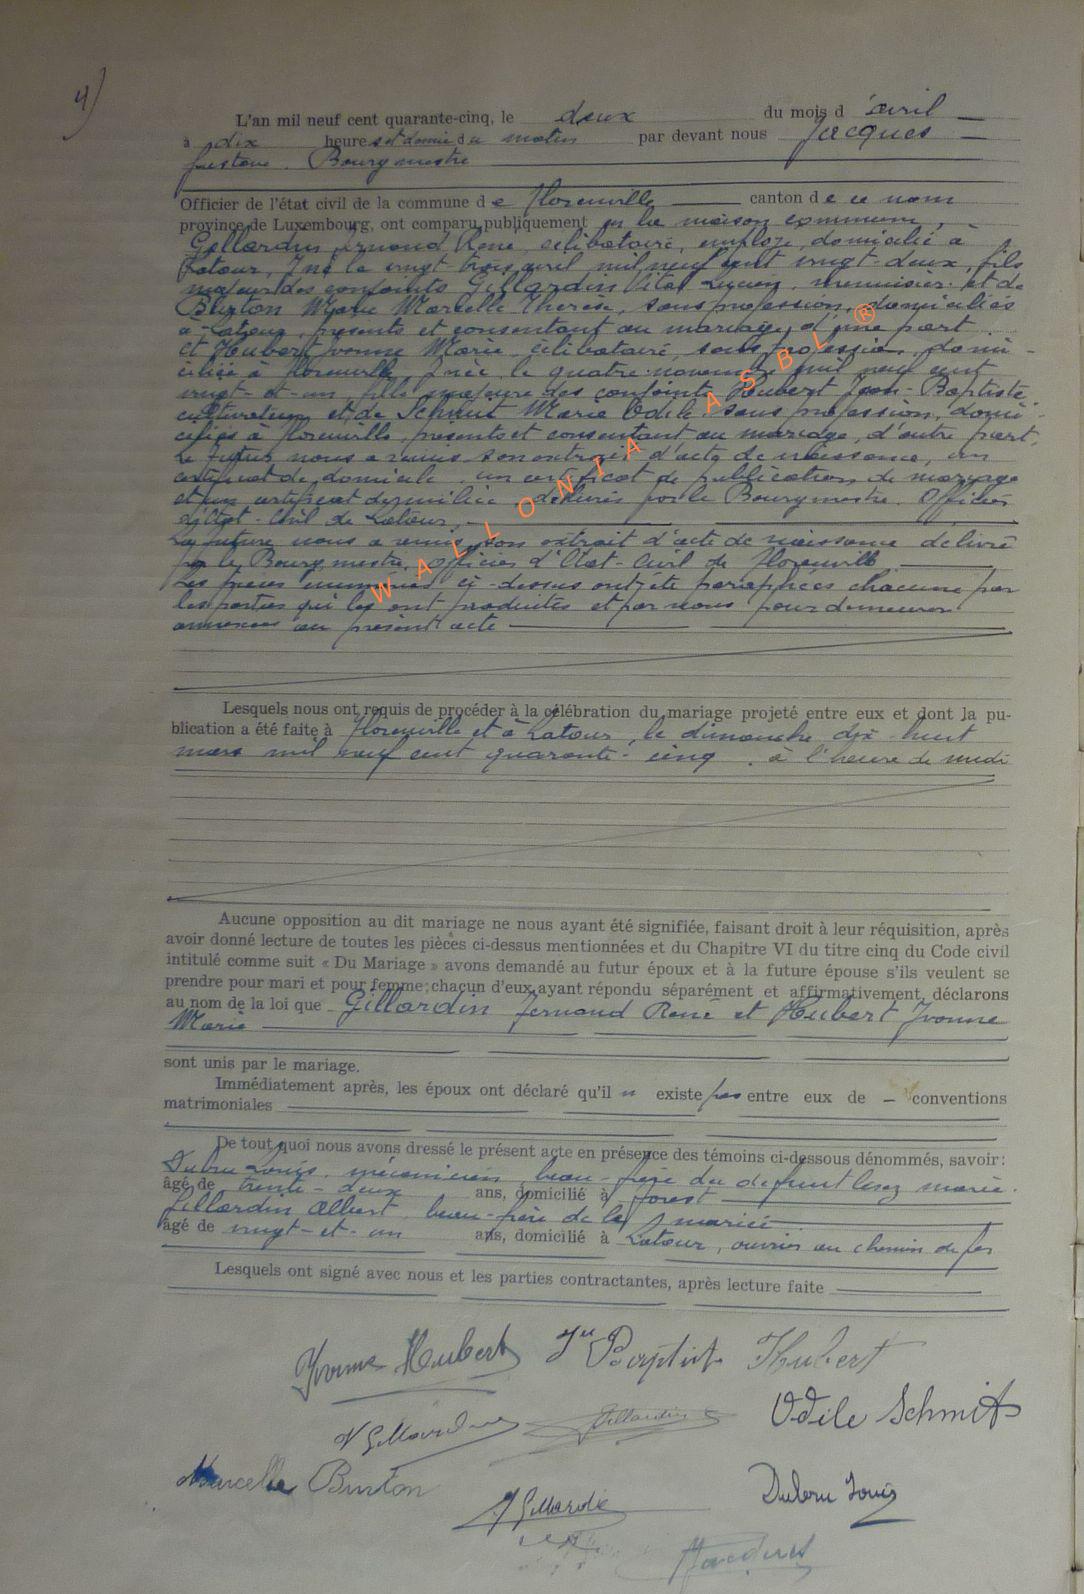 4)
L'an mil neuf cent quarante-cinq, le deux du mois d'avril
à dix heures et demie du matin par devant nous Jacques
Gustave. Bourgmestre
Officier de l'état civil de la commune de Florenville canton de ce nom
province de Luxembourg, ont comparu publiquement en la maison commune,
Gillardin Fernand René, célibataire, employé, domicilié à
Latour, y né le vingt trois avril mil neuf cent vingt-deux, fils
majeur des conjoints Gillardin Vital Lucien, menuisier et de
Burton Marie Marcelle Thérèse, sans profession, domiciliés
à Latour, présents et consentant au mariage, d'une part
et Hubert Yvonne Marie célibataire, sans profession, domi-
ciliée à Florenville, y née le quatre novembre mil neuf cent
vingt-et-un, fille majeure des conjoints Hubert Jean-Baptiste
cultivateur et de Schmit Marie Odile sans profession, domi-
ciliés à Florenville, présents et consentant au mariage, d'autre part.
Le futur nous a remis son extrait d'acte de naissance, un
certificat de domicile, un certificat de publication de mariage
et un certificat de milice délivrés par le Bourgmestre Officier
d'Etat-Civil de Latour.
La future nous a remis son extrait d'acte de naissance délivré
par le Bourgmestre, officier d'Etat-Civil de Florenville.
Les pièces énumérées ci-dessus ont été paraphées chacune par
les parties qui les ont produites et par nous pour demeurer
annexées au présent acte
WALLONIA ASBL ®
Lesquels nous ont requis de procéder à la célébration du mariage projeté entre eux et dont la pu-
blication a été faite à Florenville et à Latour, le dimanche dix-huit
mars mil neuf cent quarante-cinq, à l'heure de midi
Aucune opposition au dit mariage ne nous ayant été signifiée, faisant droit à leur réquisition, après
avoir donné lecture de toutes les pièces ci-dessus mentionnées et du Chapitre VI du titre cinq du Code civil
intitulé comme suit « Du Mariage » avons demandé au futur époux et à la future épouse s'ils veulent se
prendre pour mari et pour femme; chacun d'eux ayant répondu séparément et affirmativement, déclarons
au nom de la loi que Gillardin Fernand René et Hubert Yvonne
Marie
sont unis par le mariage.
Immédiatement après, les époux ont déclaré qu'il n'existe pas entre eux de – conventions
matrimoniales
De tout quoi nous avons dressé le présent acte en présence des témoins ci-dessous dénommés, savoir:
Dubru Louis, mécanicien, beau-frère du
âgé de trente-deux ans, domicilié à Forest
Gillardin Albert, beau-frère de la mariée
âgé de vingt-et-un ans, domicilié à Latour, ouvrier au chemin de fer
Lesquels ont signé avec nous et les parties contractantes, après lecture faite
Yvonne Hubert Jn Baptist Hubert
V Gillardin Gillardin Odile Schmit
Marcelle Burton
A Gillardin Dubru Louis
Jacques